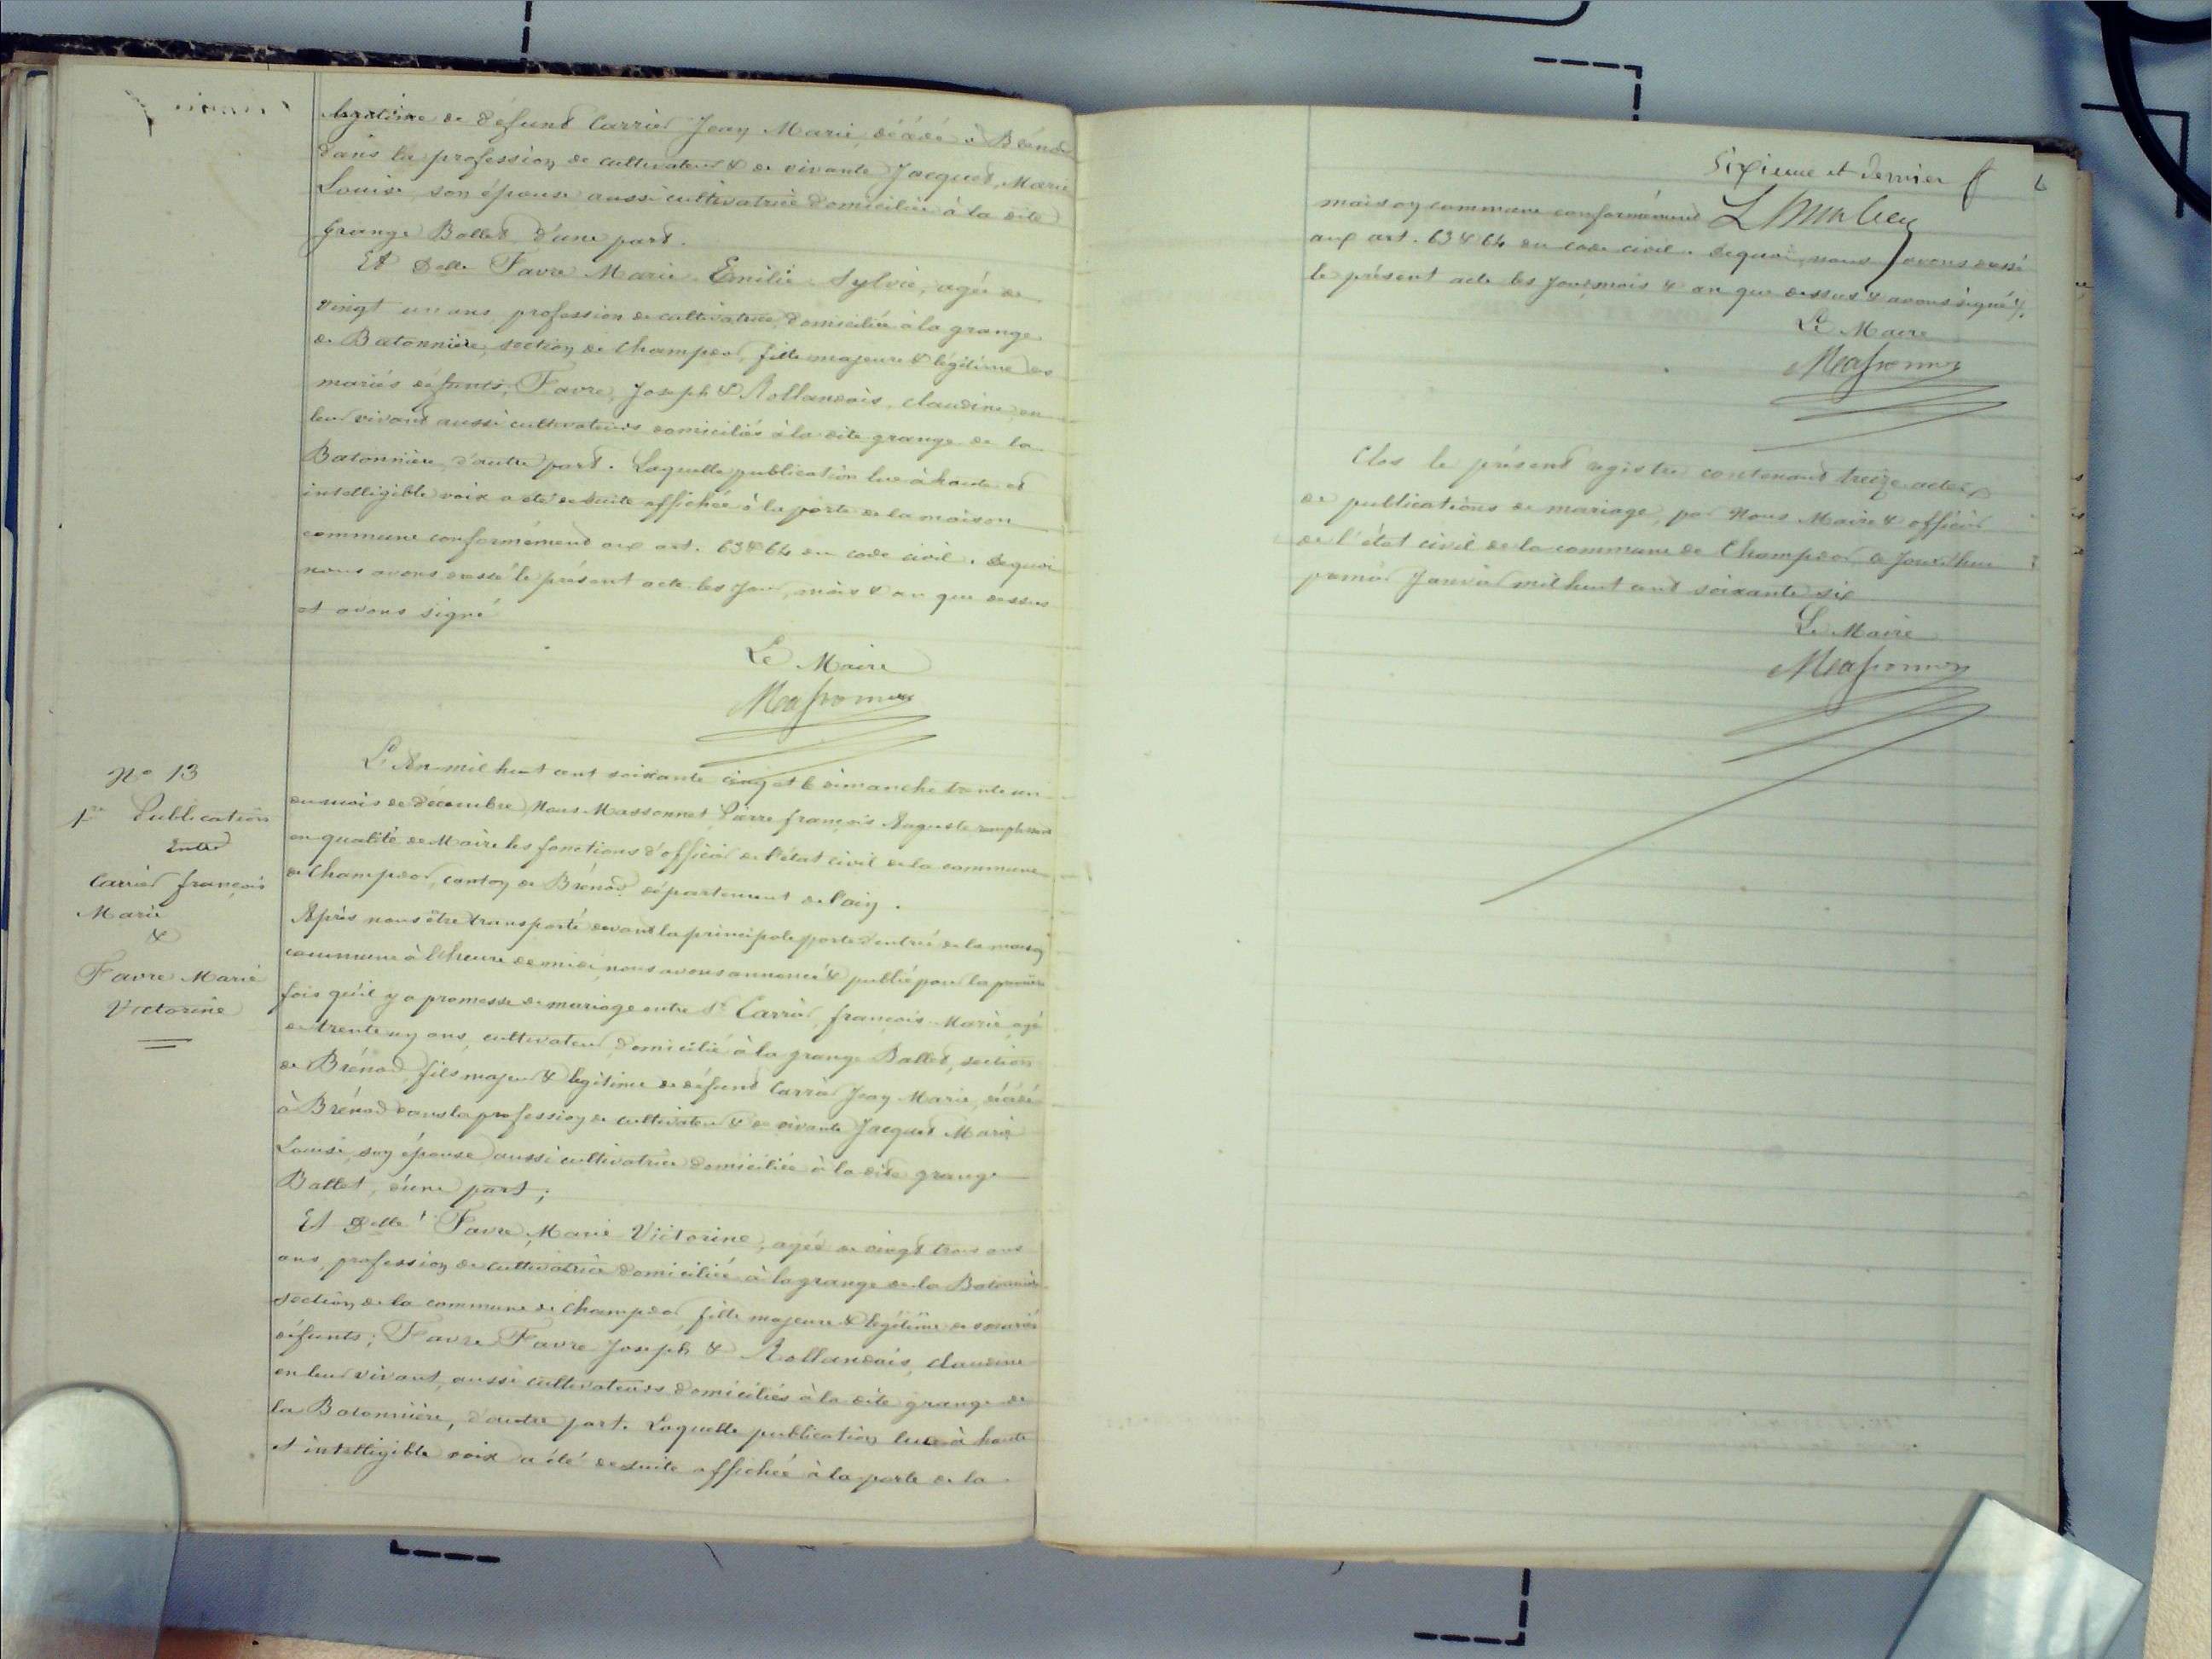 légitime de défunt Carrier Jean Marie, décédé à Brénod
dans la profession de cultivateur & de vivante Jacquet, Marie
Louise, son épouse aussi cultivatrice domiciliée à la dite
grange Ballet, d'une part.
Et Delle Favre Marie Emilie Sylvie, agée de
vingt un ans, profession de cultivatrice, domiciliée à la grange
de Batonnière, section de Champdor, fille majeure & légitime des
mariés défunts, Favre, Joseph & Rollandois, claudine, en
leur vivant aussi cultivateurs domiciliés à la dite grange de la
Batonnière, d'autre part. Laquelle publication lue à haute et
intelligible voix a été de suite affichée à la porte de la maison
commune conformément aux art. 63 & 64 du code civil. Dequoi
nous avons dressé le présent acte les jour, mois & an que dessus
et avons signé
Le Maire
Massonnet
N° 13
1re Publication
Entre
Carrier françois
Marie
&
Favre Marie
Victorine
L'An mil huit cent soixante cinq et le dimanche trente un
du mois de décembre, Nous Massonnet Pierre françois Auguste remplissant
en qualité de Maire les fonctions d'officier de l'état civil de la commune
de Champdor, canton de Brénod département de l'ain.
Après nous être transporté devant la principale porte d'entrée de la maison
commune à l'heure de midi, nous avons annoncé & publié pour la première
fois qu'il y a promesse de mariage entre Sr Carrier, françois Marie, agé
de trente un ans, cultivateur, domicilié à la grange Ballet, section
de Brénod, fils majeur & légitime de défunt Carrier Jean Marie, décédé
à Brénod dans la profession de cultivateur & de vivante Jacquet Marie
Louise, son épouse, aussi cultivatrice domiciliée à la dite grange
Ballet, d'une part;
Et Delle Favre, Marie Victorine, agée de vingt trois ans
ans, profession de cultivatrice domiciliée à la grange de la Batonnière
section de la commune de Champdor, fille majeure & légitime des mariés
défunts; Favre Favre Joseph & Rollandois, claudine
en leur vivant, aussi cultivateurs domiciliés à la dite grange de
la Batonnière, d'autre part. Laquelle publication lue à haute
et intelligible voix a été de suite affichée à la porte de la
Sixième et dernier f 6
maison commune conformément
aux art. 63 & 64 du code civil. Dequoi, nous avons dressé
le présent acte les jour, mois & an que dessus & avons signé /.
Le Maire
Massonnet
Clos le présent registre contenant treize actes
de publications de mariage, par Nous Maire & officier
de l'état civil de la commune de Champdor, a jourd'hui
premier Janvier mil huit cent soixante six
Le Maire
Massonnet